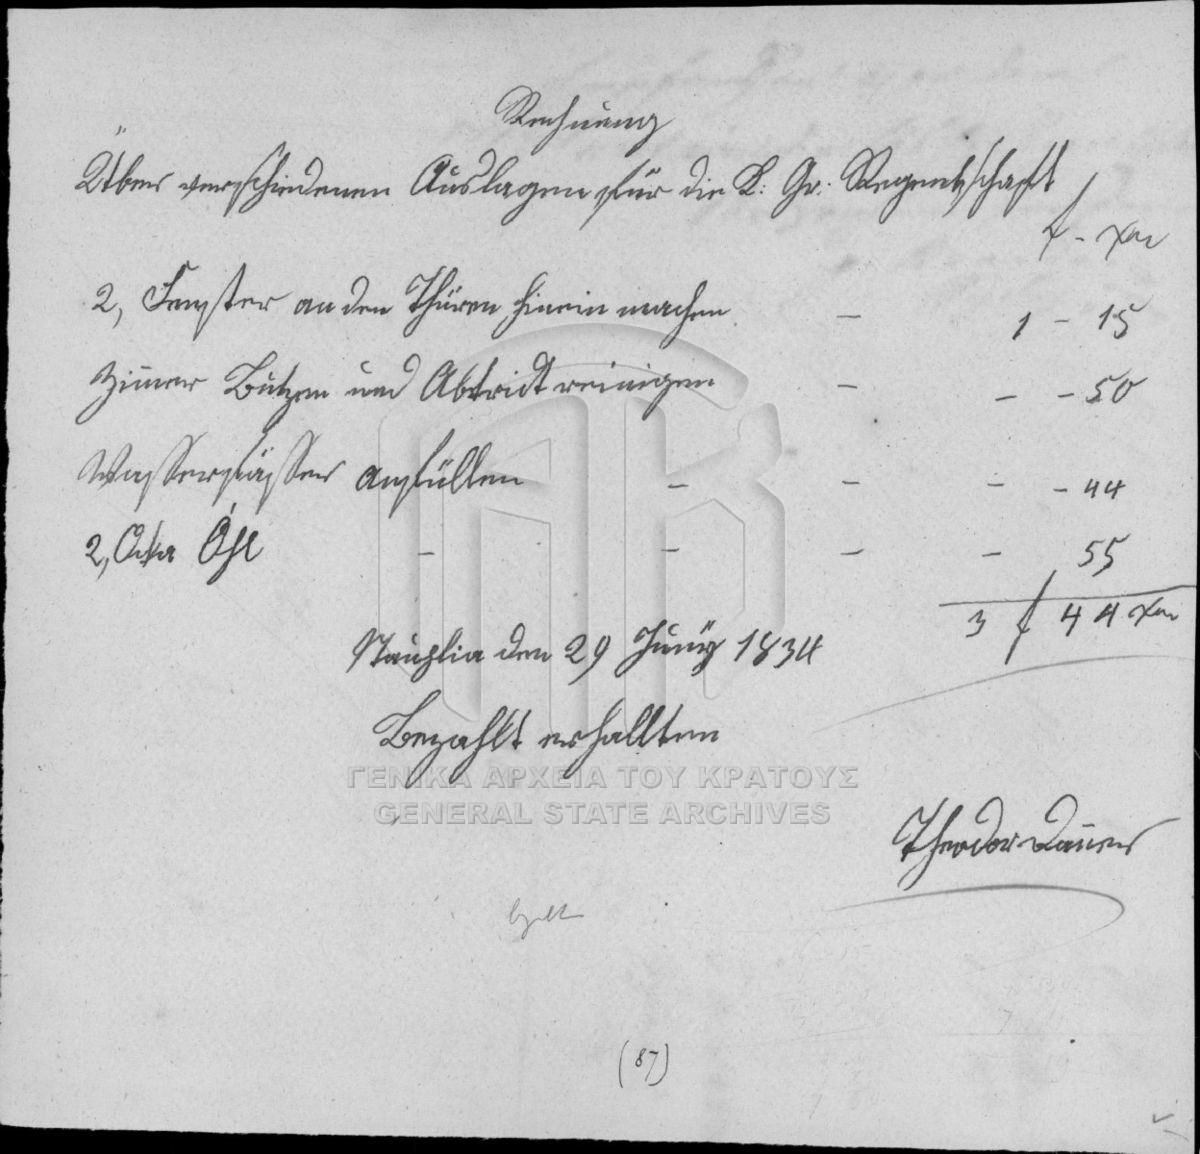 Rechnung
Über verschiedenen Auslagen für die K: Gr: Regentschaft
f - Xer
2, Fenster an den Thüren hinein machen — 1 – 15
Zimer Butzen und Abtridt reinigen — — – 50
Wasserfässer anfüllen — — — – 44
2, Oka Öhl — — — — 55
3 f 44 Xer
Nauplia den 29 Juny 1834
Bezahlt erhallten
ΓΕΝΙΚΑ ΑΡΧΕΙΑ ΤΟΥ ΚΡΑΤΟΥΣ
GENERAL STATE ARCHIVES
Theodor
(87)